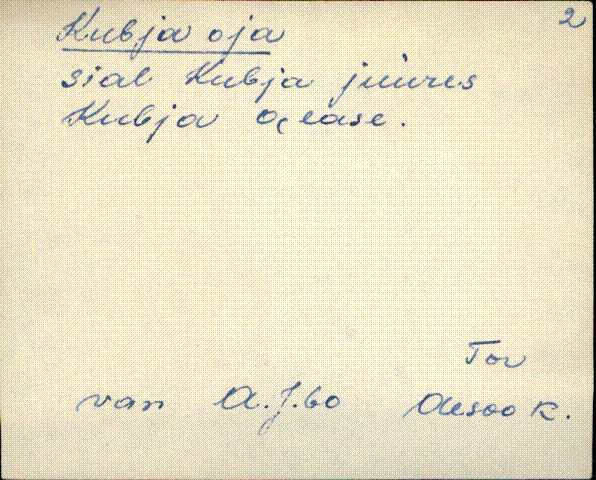 2
Kubja oja
sial Kubja juures
Kubja
Tor
van A.J.60 Aesoo k.